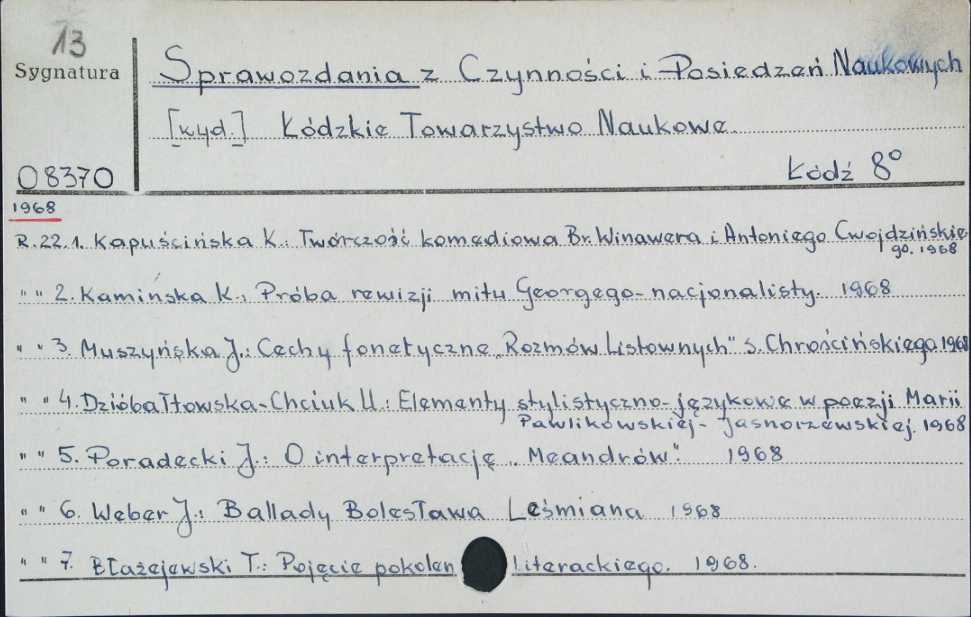 13
Sygnatura
Sprawozdania z Czynności i Posiedzeń Naukowych
[wyd.] Łódzkie Towarzystwo Naukowe.
08370
Łódź 8°
1968
R.22.1. Kapuścińska K.: Twórczość komediowa Br. Winawera i Antoniego Cwojdzińskie
go. 1968
" " 2. Kamińska K., Próba rewizji mitu Georgego-nacjonalisty. 1968
" " 3. Muszyńska J.: Cechy fonetyczne „Rozmów Listownych" S. Chrościńskiego 1968
" " 4. Dzióbałtowska-Chciuk U.: Elementy stylistyczno-językowe w poezji Marii
Pawlikowskiej-Jasnorzewskiej. 1968
" " 5. Poradecki J.: O interpretację „Meandrów". 1968
" " 6. Weber J.: Ballady Bolesława Leśmiana 1968
" " 7. Błażejewski T.: Pojęcie pokolen literackiego. 1968.